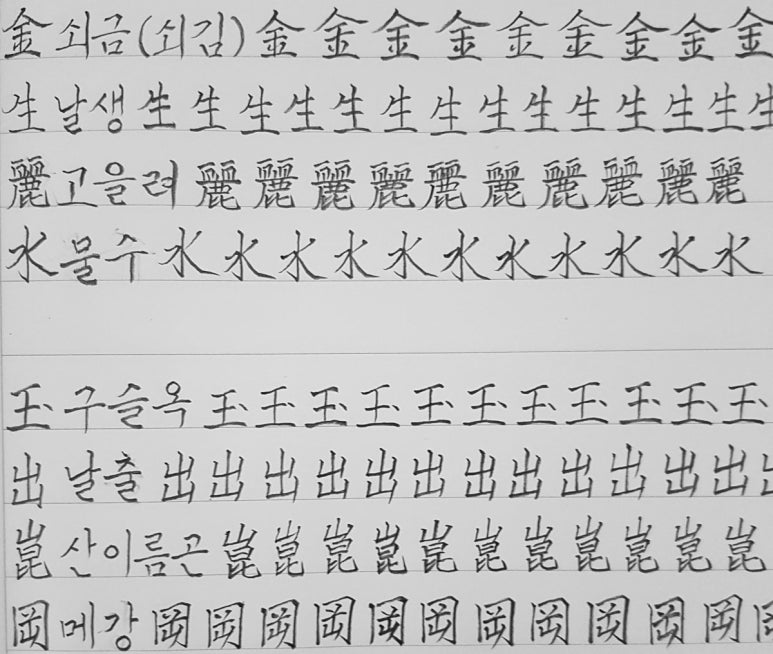 金 쇠금(쇠김) 金 金 金 金 金 金 金 金 金
生 날생 生 生 生 生 生 生 生 生 生 生 生 生 生 生
麗 고을려 麗 麗 麗 麗 麗 麗 麗 麗 麗 麗
水 물수 水 水 水 水 水 水 水 水 水 水 水
玉 구슬옥 玉 玉 玉 玉 玉 玉 玉 玉 玉 玉 玉
出 날출 出 出 出 出 出 出 出 出 出 出 出 出
崑 산이름곤 崑 崑 崑 崑 崑 崑 崑 崑 崑 崑 崑
岡 메강 岡 岡 岡 岡 岡 岡 岡 岡 岡 岡 岡